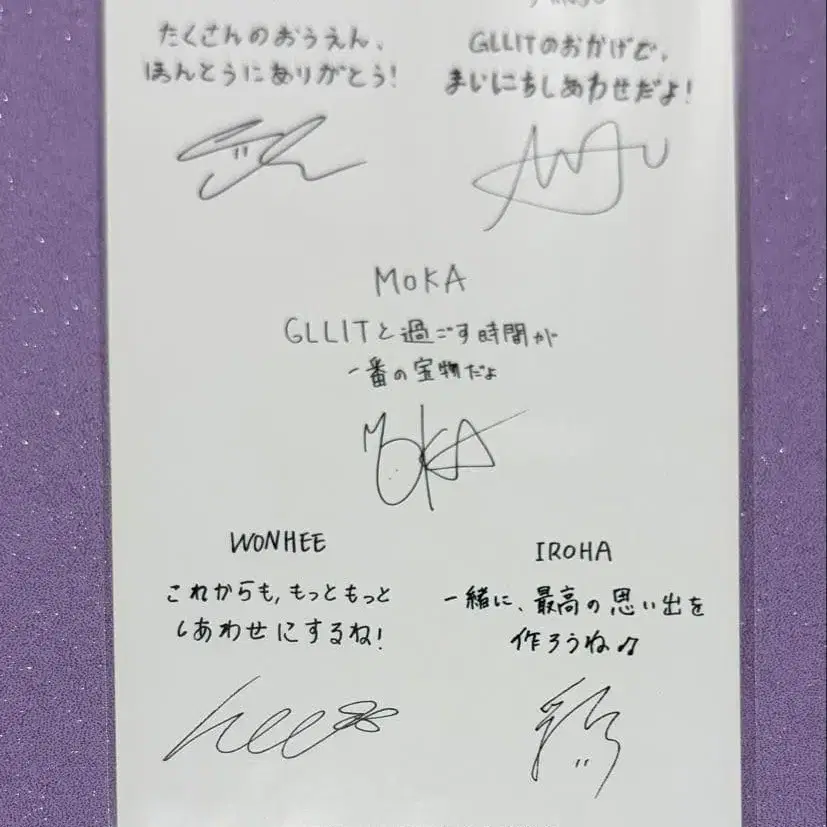 たくさんのおうえん、
ほんとうにありがとう!
GLLITのおかげで、
まいにちしあわせだよ!
MOKA
GLLITと過ごす時間が
一番の宝物だよ
MOKA
WONHEE
これからも,もっともっと
しあわせにするね!
IROHA
一緒に、最高の思い出を
作ろうね♫